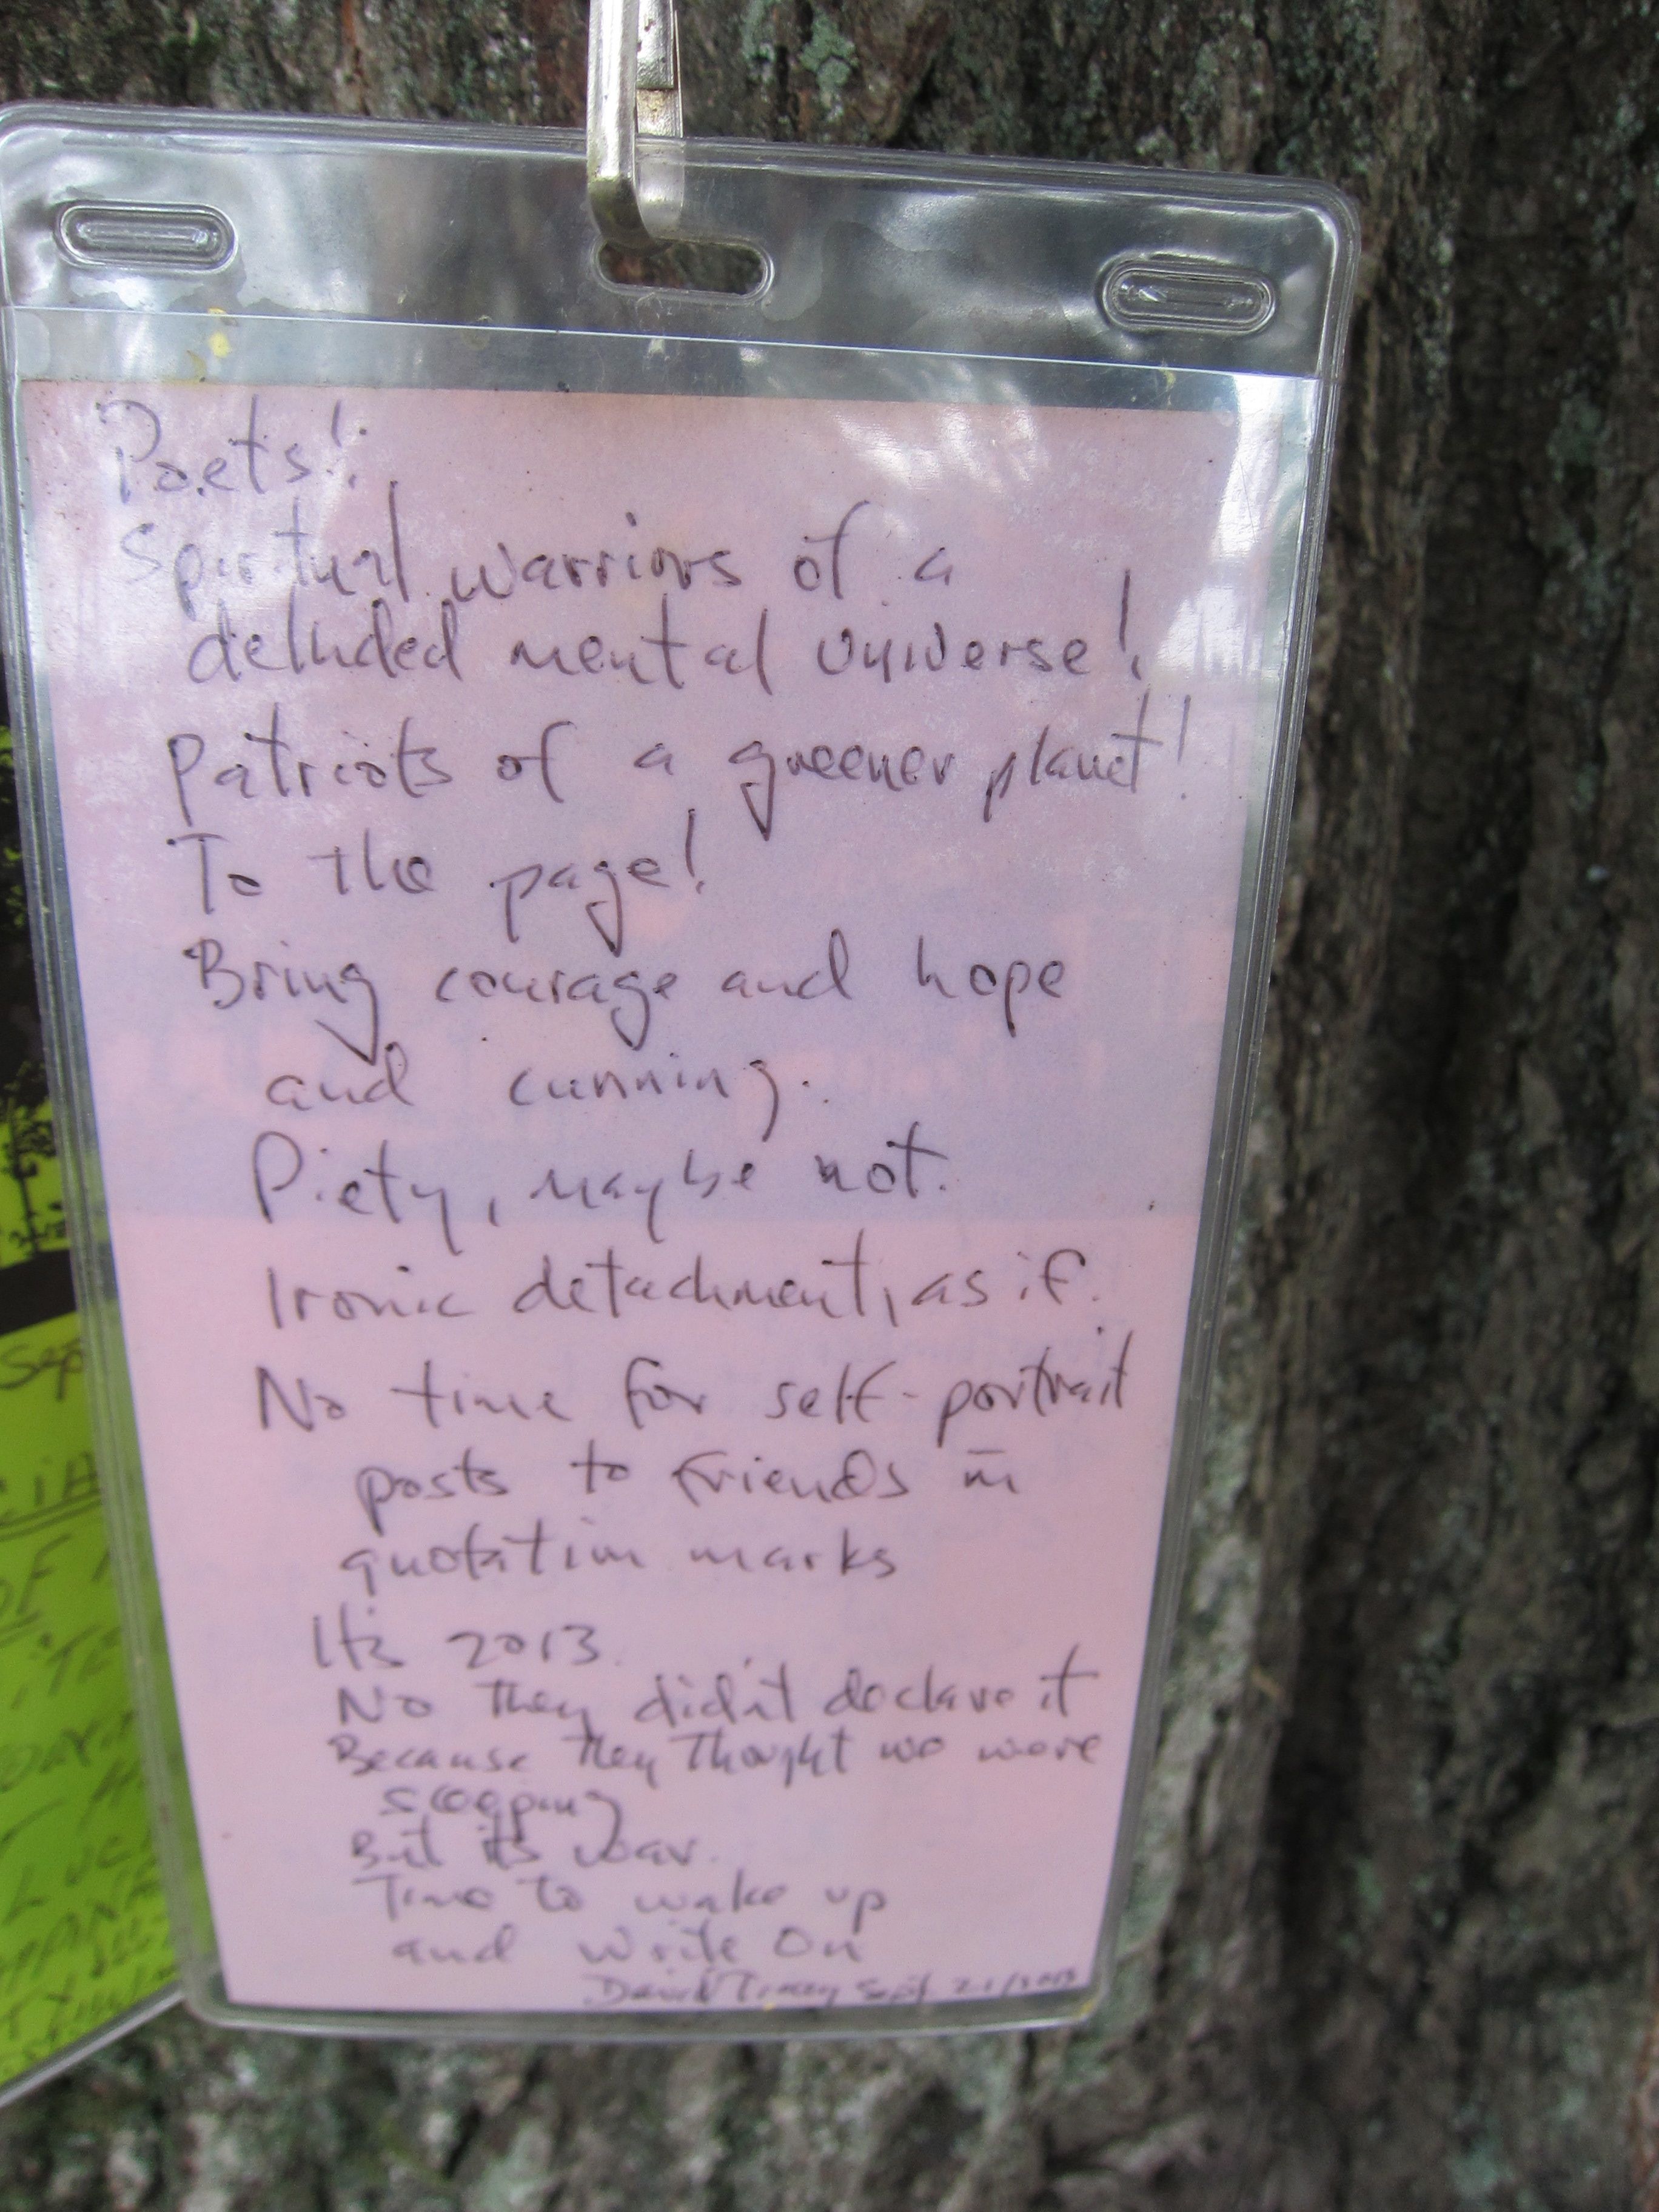 Poets!
Spiritual warriors of a
deluded mental universe!
Patriots of a greener planet!
To the page!
Bring courage and hope
and cunning.
Piety, maybe not.
Ironic detachment, as if.
No time for self-portrait
posts to friends in
quotation marks
Its 2013.
No they didn't declare it
Because they thought we were
sleeping
But its war.
Time to wake up
and write on
David Tracey Sept 21/2013
Sep